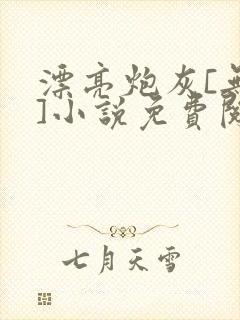 漂亮炮灰[無
]小說免費閱
七月天雪